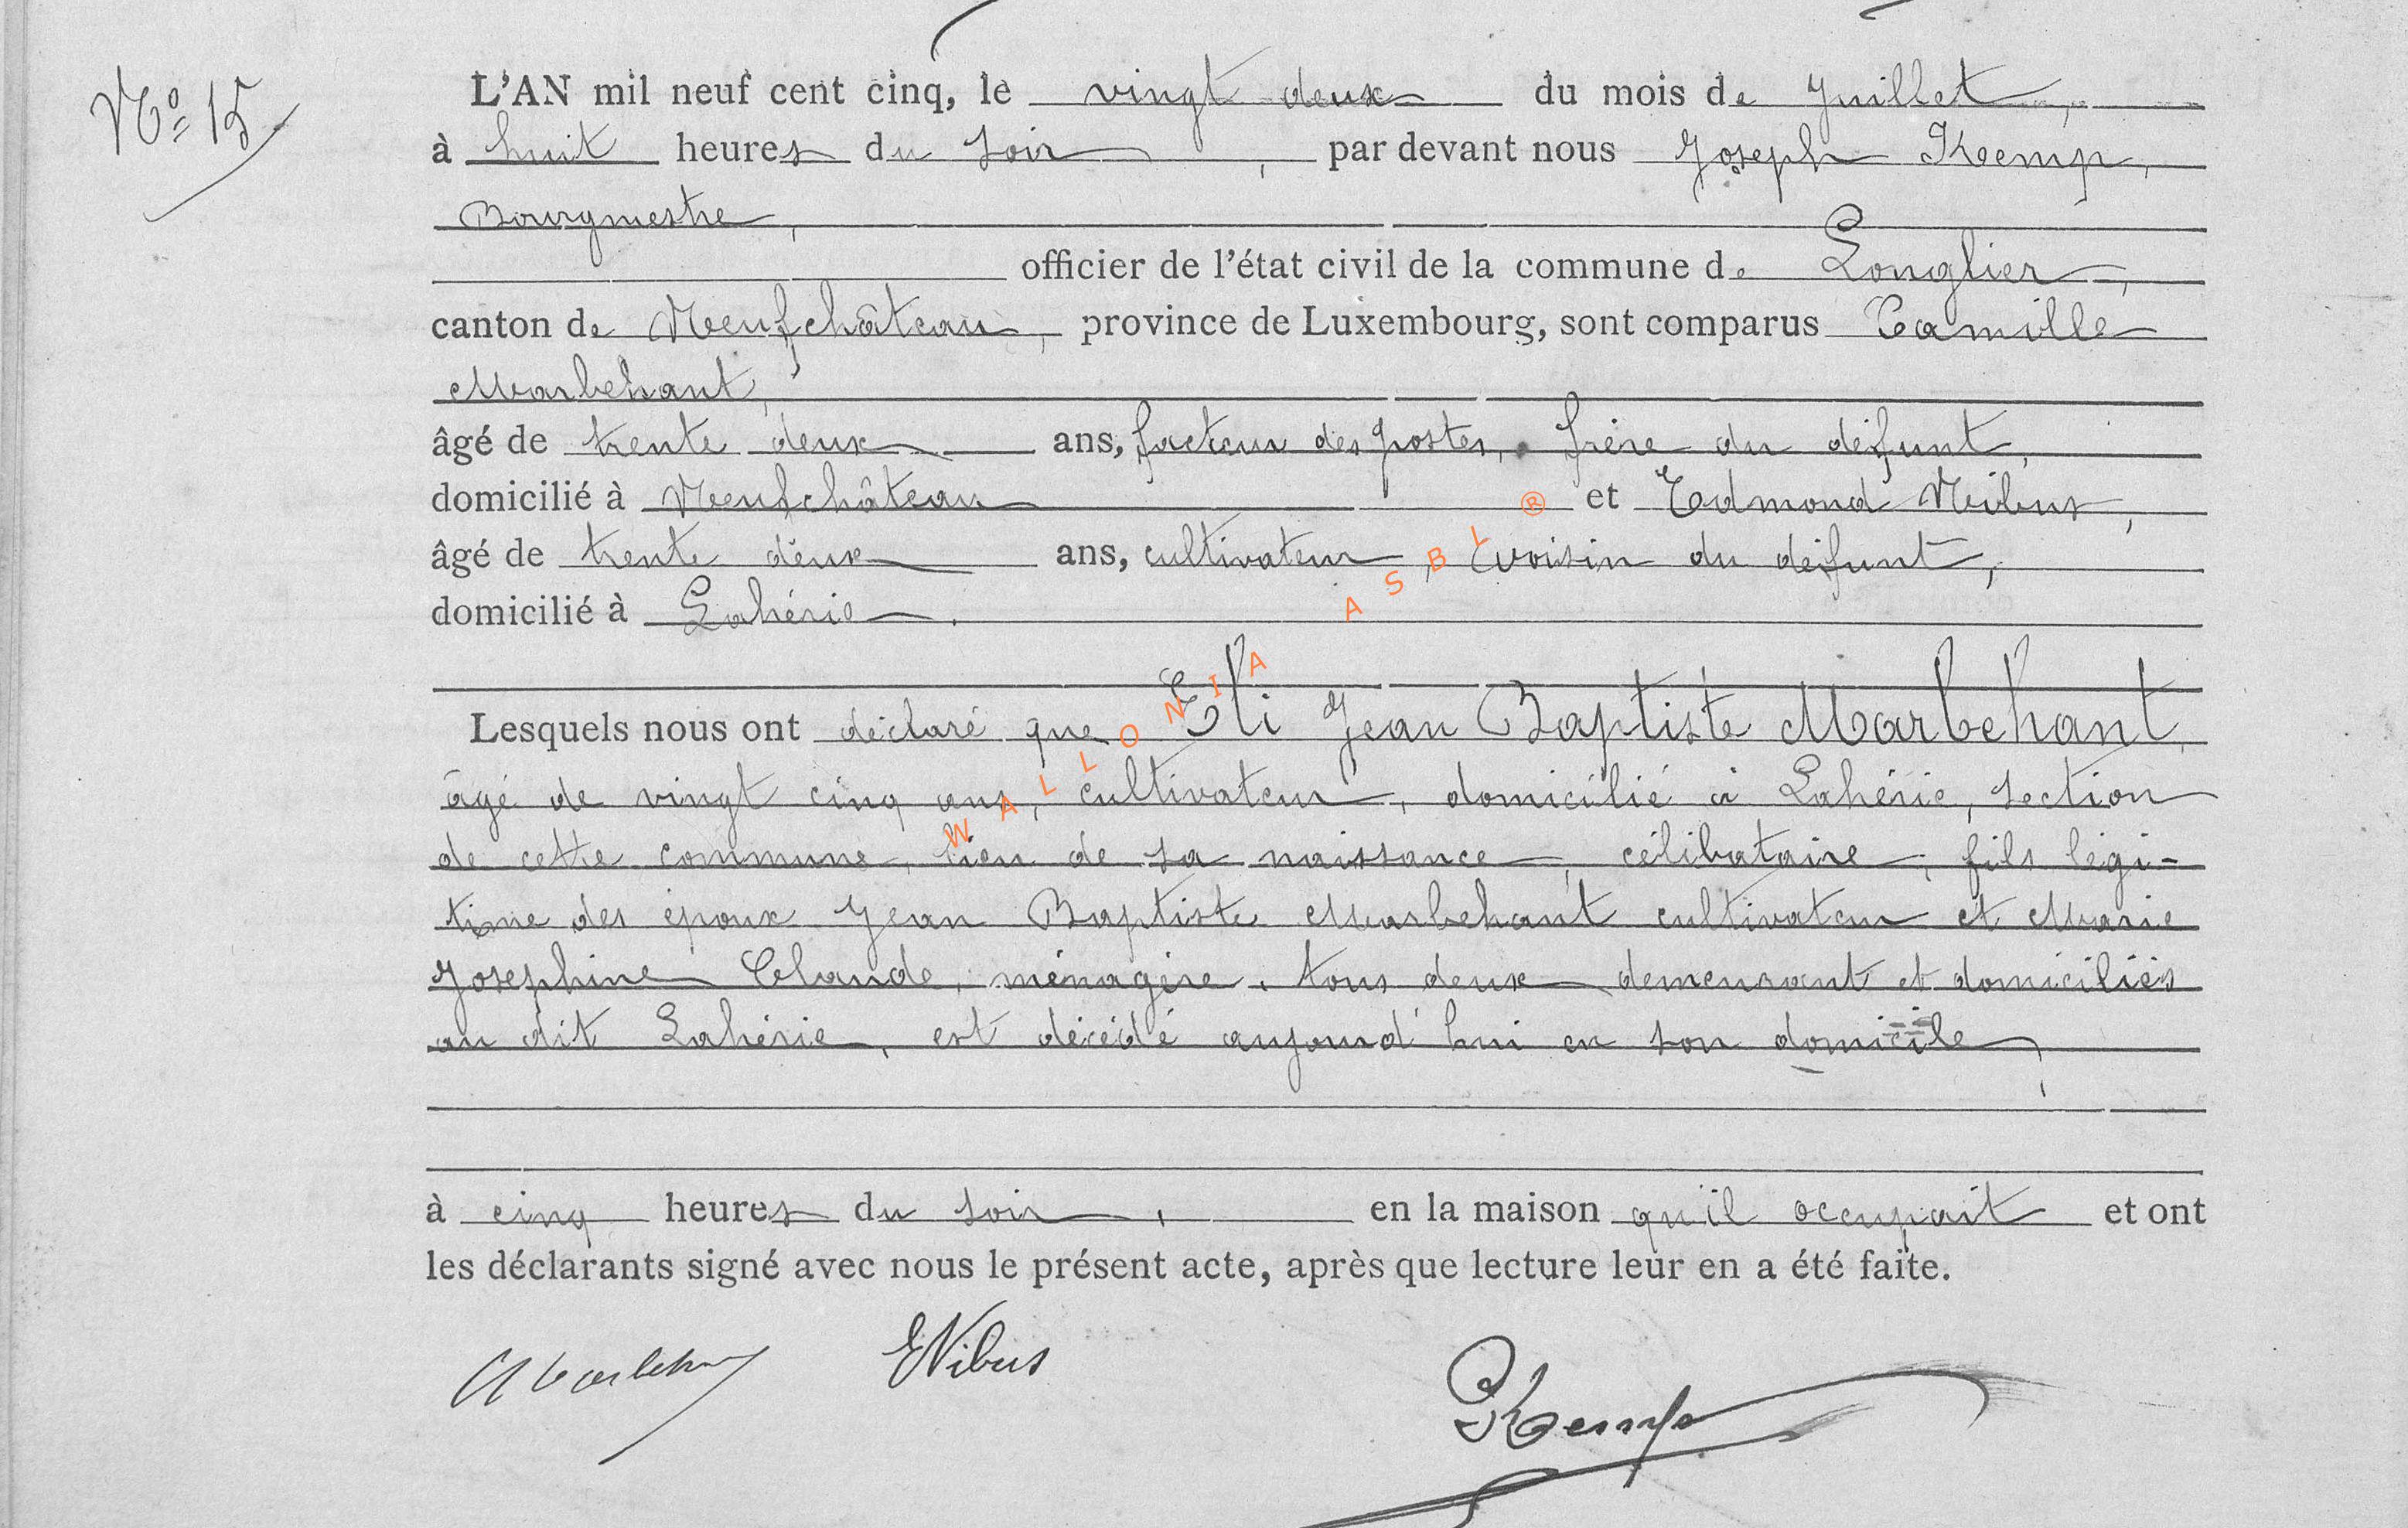 Nº 15
L'AN mil neuf cent cinq, le vingt deux du mois de Juillet,
à huit heures du soir, par devant nous Joseph Kemp,
Bourgmestre,
officier de l'état civil de la commune de Longlier,
canton de Neufchâteau, province de Luxembourg, sont comparus Camille
Marbehant,
âgé de trente deux ans, facteur des postes, frère du défunt,
domicilié à Neufchâteau et Edmond Nibus,
âgé de trente deux ans, cultivateur, voisin du défunt,
domicilié à Lahérie.
Lesquels nous ont déclaré que Eli Jean Baptiste Marbehant,
âgé de vingt cinq ans, cultivateur, domicilié à Lahérie, section
de cette commune, lieu de sa naissance, célibataire, fils légi-
time des époux Jean Baptiste Marbehant cultivateur et Marie
Josephine Claude, ménagère, tous deux demeurant et domiciliés
au dit Lahérie, est décédé aujourd'hui en son domicile,
à cinq heures du soir, en la maison qu'il occupait et ont
les déclarants signé avec nous le présent acte, après que lecture leur en a été faite.
ENibus
JKemp
WALLONIA ASBL ®